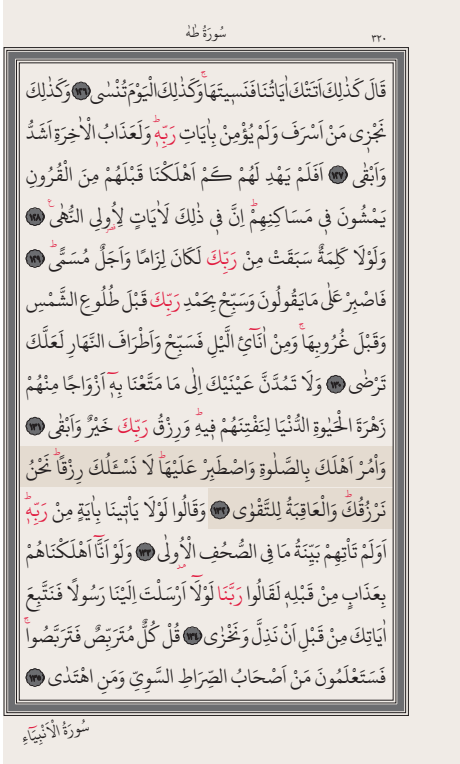 سُورَةُ طٰهٰ
٣٢٠
قَالَ كَذٰلِكَ اَتَتْكَ اٰيَاتُنَا فَنَسِيتَهَاۚ وَكَذٰلِكَ الْيَوْمَ تُنْسٰى ﴿١٢٦﴾ وَكَذٰلِكَ
نَجْزِى مَنْ اَسْرَفَ وَلَمْ يُؤْمِنْ بِاٰيَاتِ رَبِّهٖۜ وَلَعَذَابُ الْاٰخِرَةِ اَشَدُّ
وَاَبْقٰى ﴿١٢٧﴾ اَفَلَمْ يَهْدِ لَهُمْ كَمْ اَهْلَكْنَا قَبْلَهُمْ مِنَ الْقُرُونِ
يَمْشُونَ فِى مَسَاكِنِهِمْۜ اِنَّ فِى ذٰلِكَ لَاٰيَاتٍ لِاُولِى النُّهٰىۚ ﴿١٢٨﴾
وَلَوْلَا كَلِمَةٌ سَبَقَتْ مِنْ رَبِّكَ لَكَانَ لِزَامًا وَاَجَلٌ مُسَمًّىۜ ﴿١٢٩﴾
فَاصْبِرْ عَلٰى مَا يَقُولُونَ وَسَبِّحْ بِحَمْدِ رَبِّكَ قَبْلَ طُلُوعِ الشَّمْسِ
وَقَبْلَ غُرُوبِهَاۚ وَمِنْ اٰنَآئِ الَّيْلِ فَسَبِّحْ وَاَطْرَافَ النَّهَارِ لَعَلَّكَ
تَرْضٰى ﴿١٣٠﴾ وَلَا تَمُدَّنَّ عَيْنَيْكَ اِلٰى مَا مَتَّعْنَا بِهٖٓ اَزْوَاجًا مِنْهُمْ
زَهْرَةَ الْحَيٰوةِ الدُّنْيَا لِنَفْتِنَهُمْ فِيهِۜ وَرِزْقُ رَبِّكَ خَيْرٌ وَاَبْقٰى ﴿١٣١﴾
وَاْمُرْ اَهْلَكَ بِالصَّلٰوةِ وَاصْطَبِرْ عَلَيْهَاۜ لَا نَسْـَٔلُكَ رِزْقًاۜ نَحْنُ
نَرْزُقُكَۜ وَالْعَاقِبَةُ لِلتَّقْوٰى ﴿١٣٢﴾ وَقَالُوا لَوْلَا يَاْتِينَا بِاٰيَةٍ مِنْ رَبِّهٖۜ
اَوَلَمْ تَاْتِهِمْ بَيِّنَةُ مَا فِى الصُّحُفِ الْاُولٰى ﴿١٣٣﴾ وَلَوْ اَنَّآ اَهْلَكْنَاهُمْ
بِعَذَابٍ مِنْ قَبْلِهٖ لَقَالُوا رَبَّنَا لَوْلَآ اَرْسَلْتَ اِلَيْنَا رَسُولًا فَنَتَّبِعَ
اٰيَاتِكَ مِنْ قَبْلِ اَنْ نَذِلَّ وَنَخْزٰى ﴿١٣٤﴾ قُلْ كُلٌّ مُتَرَبِّصٌ فَتَرَبَّصُواۚ
فَسَتَعْلَمُونَ مَنْ اَصْحَابُ الصِّرَاطِ السَّوِيِّ وَمَنِ اهْتَدٰى ﴿١٣٥﴾
سُورَةُ الْاَنْبِيَآءِ